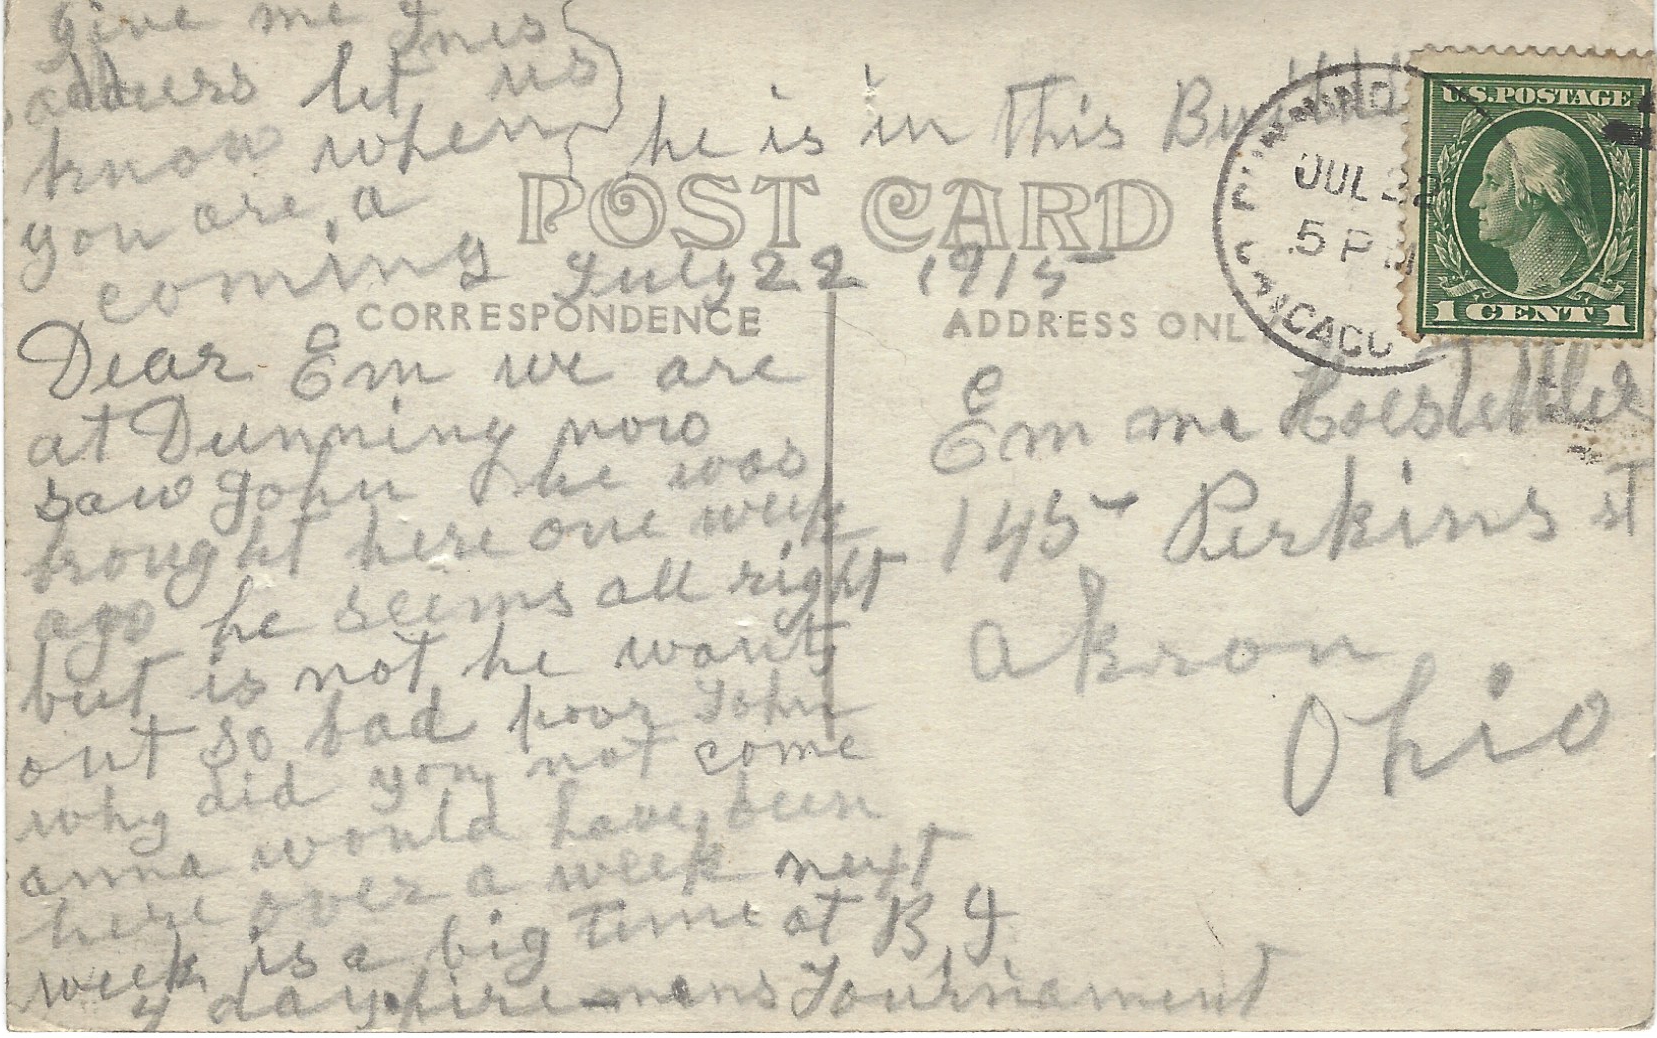 Give me Ines
adders let us
know when
you are a
coming
he is in This Building
POST CARD
July 22 1915
CORRESPONDENCE
ADDRESS ONL
DUNNING
JUL 22
5 PM
CHICAGO
U.S. POSTAGE
1 CENT 1
Dear Em we are
at Dunning now
saw John he was
brought here one week
ago he seems all right
but is not he wants
out so bad poor John
why did you not come
anna would have been
here over a week next
week is a big Time at B, I
4 day firemens Tournament
Emma Hostettler
145 Perkins sT
akron
Ohio